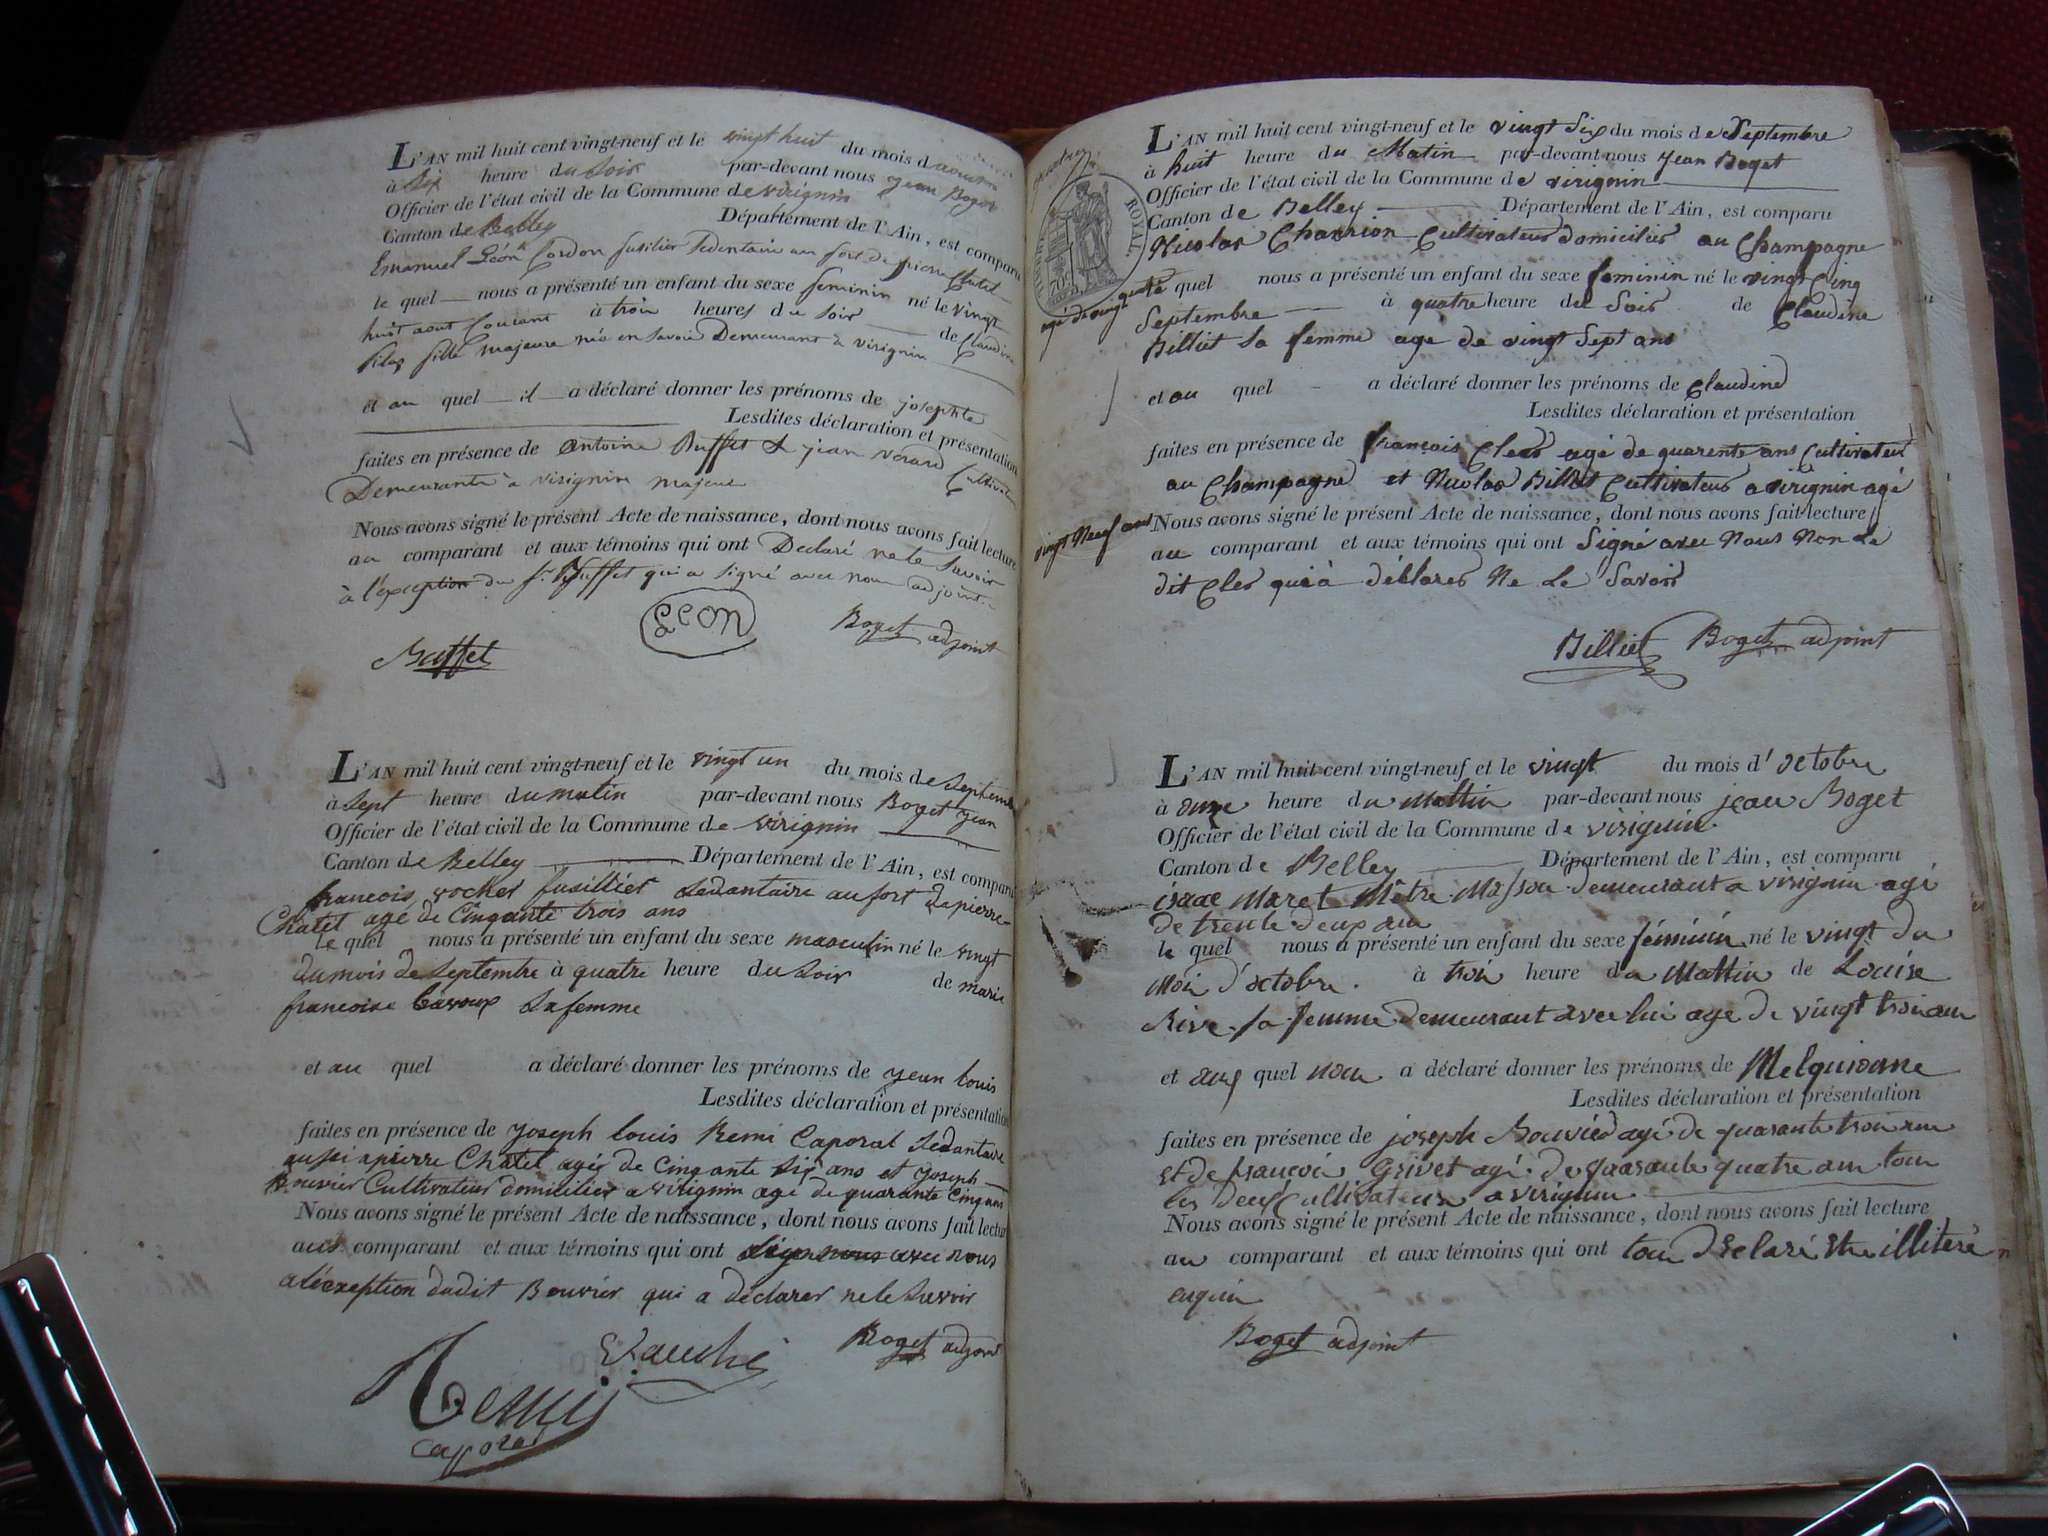 L'AN mil huit cent vingt-neuf et le vingt huit du mois d'aoust
à Six heure du Soir par-devant nous jean Boget
Officier de l'état civil de la Commune de virignin
Canton de Belley Département de l'Ain, est comparu
Emanuel Léon Cordon fusilier Sedentaire au fort de pierre Chatel
le quel — nous a présenté un enfant du sexe feminin né le vingt
huit aout Courant à trois heures du Soir de Claudine
fille majeure née en Savoie Demeurant à virignin
et au quel — il — a déclaré donner les prénoms de josephte
Lesdites déclaration et présentation
faites en présence de antoine Buffet & jean verard Cultivateur
Demeurants à virignin majeur
Nous avons signé le présent Acte de naissance, dont nous avons fait lecture
au comparant et aux témoins qui ont Declaré ne le Savoir
à l'exception du Sr Buffet qui a signé avec nous adjoint
Buffet
LEON
Boget adjoint
L'AN mil huit cent vingt-neuf et le vingt un du mois de Septembre
à Sept heure du matin par-devant nous Boget jean
Officier de l'état civil de la Commune de virignin
Canton de Belley Département de l'Ain, est comparu
francois fusillier Sedantaire au fort de pierre
Chatel agé de Cinqante trois ans
le quel nous a présenté un enfant du sexe masculin né le vingt
du mois de Septembre à quatre heure du Soir de marie
francoise Lavoux Sa femme
et au quel a déclaré donner les prénoms de jean Louis
Lesdites déclaration et présentation
faites en présence de joseph Louis Remi Caporal Sedantaire
aussi a pierre Chatel agér de Cinqante Six ans et joseph
Bouvier Cultivateur domicilier a virignin agé de quarante Cinq ans
Nous avons signé le présent Acte de naissance, dont nous avons fait lecture
aus comparant et aux témoins qui ont avec nous
a léxception dudit Bouvier qui a déclarer ne le Savoir
Remis
Caporal
Boget adjoint
ROYAL
L'AN mil huit cent vingt-neuf et le vingt Six du mois de Septembre
à huit heure du Matin par-devant nous jean Boget
Officier de l'état civil de la Commune de virignin
Canton de Belley Département de l'Ain, est comparu
Nicolas Charrion Cultivateur domicilier au Champagne
agé de vingt
le quel nous a présenté un enfant du sexe feminin né le vingt Cinq
Septembre à quatre heure du Soir de Claudine
Billiet Sa femme age de vingt Sept ans
et au quel a déclaré donner les prénoms de Claudine
Lesdites déclaration et présentation
faites en présence de françois Cler agé de quarente ans Cultivateur
au Champagne et Nicolas Billiet Cultivateur a virignin agé
vingt Neuf ans
Nous avons signé le présent Acte de naissance, dont nous avons fait lecture
au comparant et aux témoins qui ont Signé avec Nous Non Le
dit Cler qui à déclarer Ne Le Savoir
Billiet Boget adjoint
L'AN mil huit cent vingt-neuf et le vingt du mois d'octobre
à onze heure du Mattin par-devant nous jean Boget
Officier de l'état civil de la Commune de virignin
Canton de Belley Département de l'Ain, est comparu
isaac Maret Mêtre Masson demeurant a virignin agé
de trente deux an
le quel nous a présenté un enfant du sexe féminin né le vingt du
Moi d'octobre à troi heure du Mattin de Louise
Rive sa femme demeurant avec lui age de vingt troi an
et auq quel nou a déclaré donner les prénoms de Melquionne
Lesdites déclaration et présentation
faites en présence de joseph Bouvied agé de quarante troi an
et de françoi Grivet agé de quarante quatre an tou
les deux Cultivateur a virignin
Nous avons signé le présent Acte de naissance, dont nous avons fait lecture
au comparant et aux témoins qui ont tou déclaré être illiteré
enquin
Boget adjoint